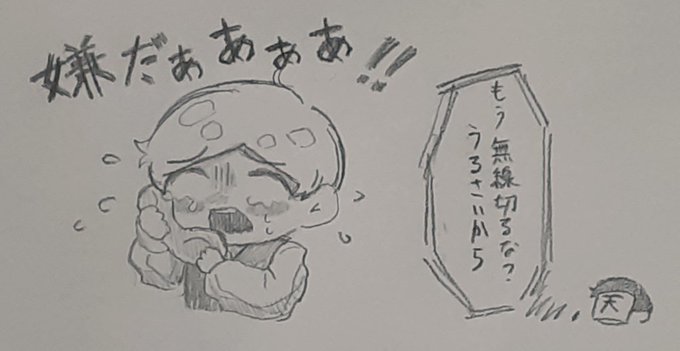 嫌だぁぁぁぁ!!
もう無線切るな?
うるさいから
天